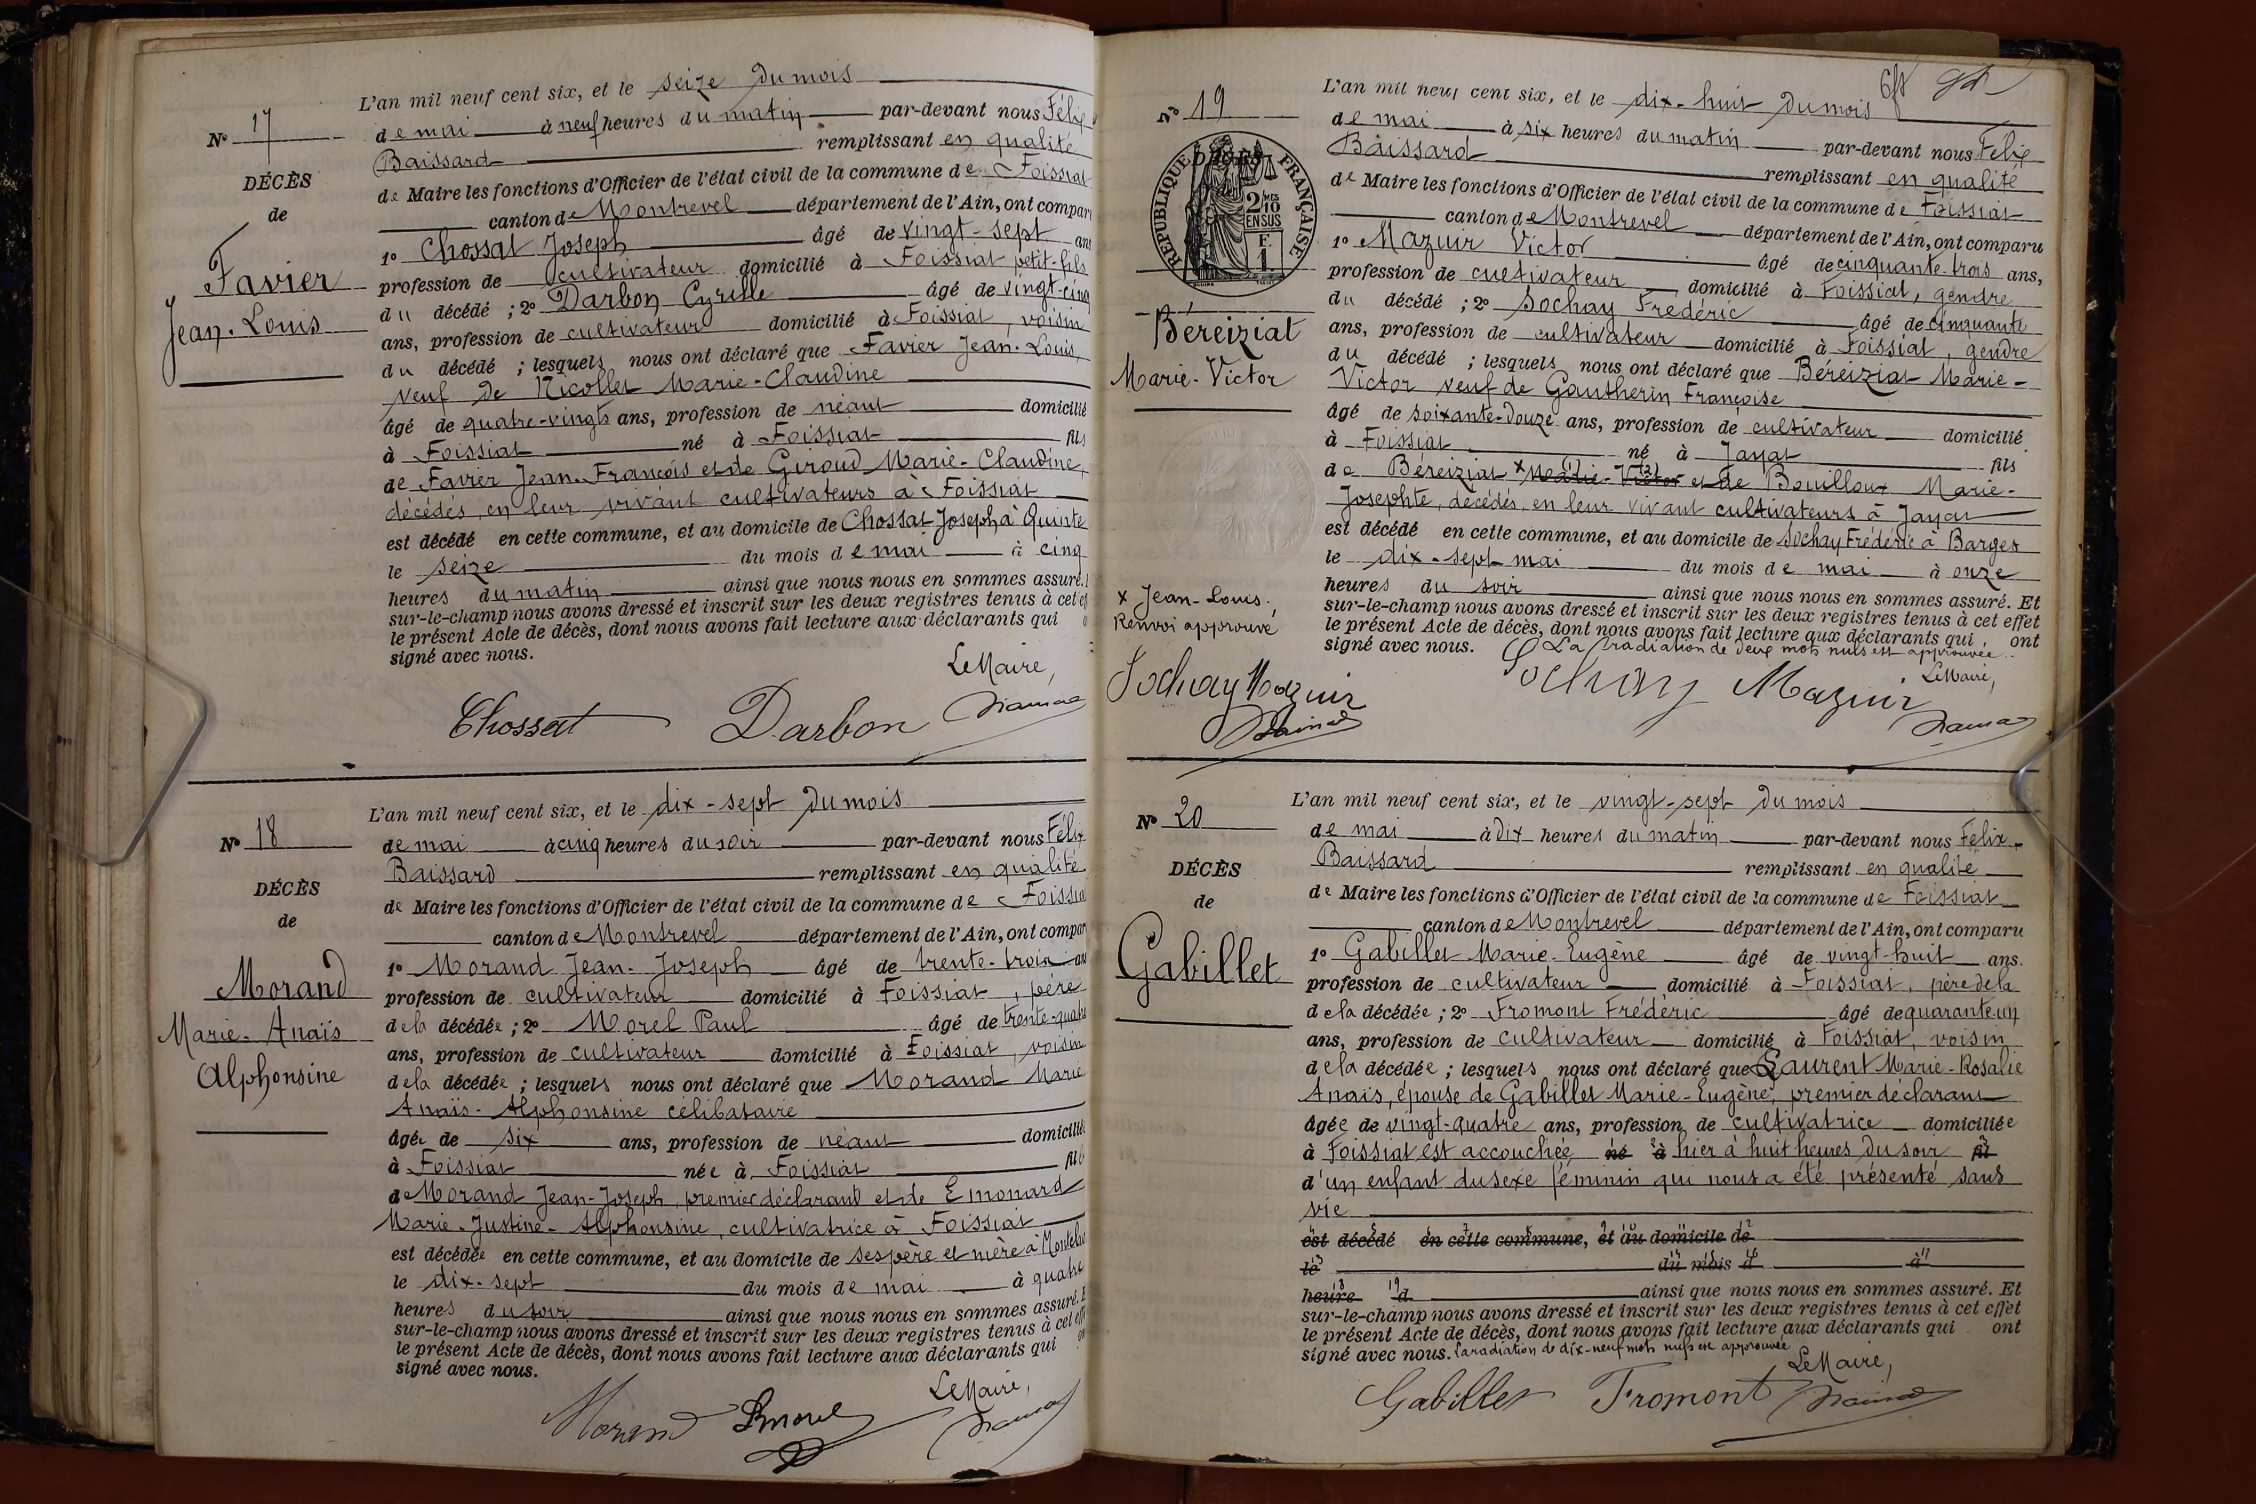 N° 17
DÉCÈS
de
Favier
Jean-Louis
L'an mil neuf cent six, et le seize du mois
de mai à neuf heures du matin par-devant nous Félix
Baissard remplissant en qualité
de Maire les fonctions d'Officier de l'état civil de la commune de Foissiat
canton de Montrevel département de l'Ain, ont compar
1° Chossat Joseph âgé de vingt-sept ans
profession de cultivateur domicilié à Foissiat petit-fils
du décédé ; 2° Darbon Cyrille âgé de vingt-cinq
ans, profession de cultivateur domicilié à Foissiat, voisin
du décédé ; lesquels nous ont déclaré que Favier Jean-Louis,
veuf de Nicollet Marie-Claudine
âgé de quatre-vingts ans, profession de néant domicilié
à Foissiat né à Foissiat fils
de Favier Jean-François et de Giroud Marie-Claudine,
décédés, en leur vivant cultivateurs à Foissiat
est décédé en cette commune, et au domicile de Chossat Joseph à Quinte
le seize du mois de mai à cinq
heures du matin ainsi que nous nous en sommes assuré.
sur-le-champ nous avons dressé et inscrit sur les deux registres tenus à cet ef
le présent Acte de décès, dont nous avons fait lecture aux déclarants qui
signé avec nous.
Le Maire,
Chossat Darbon
N° 18
DÉCÈS
de
Morand
Marie-Anaïs
Alphonsine
L'an mil neuf cent six, et le dix-sept du mois
de mai à cinq heures du soir par-devant nous Félix
Baissard remplissant en qualité
de Maire les fonctions d'Officier de l'état civil de la commune de Foissia
canton de Montrevel département de l'Ain, ont compar
1° Morand Jean-Joseph âgé de trente-trois ans
profession de cultivateur domicilié à Foissiat, père
de la décédée ; 2° Morel Paul âgé de trente-quatre
ans, profession de cultivateur domicilié à Foissiat, voisin
de la décédée ; lesquels nous ont déclaré que Morand Marie
Anaïs-Alphonsine célibataire
âgée de six ans, profession de néant domicilié
à Foissiat née à Foissiat fil
de Morand Jean-Joseph, premier déclarant et de Emonard
Marie-Justine-Alphonsine, cultivatrice à Foissiat
est décédée en cette commune, et au domicile de ses père et mère à
le dix-sept du mois de mai à quatre
heures du soir ainsi que nous nous en sommes assuré. E
sur-le-champ nous avons dressé et inscrit sur les deux registres tenus à cet eff
le présent Acte de décès, dont nous avons fait lecture aux déclarants qui on
signé avec nous.
Le Maire,
Morand
N° 19
RÉPUBLIQUE FRANÇAISE
2/10 EN SUS
Béreiziat
Marie-Victor
x Jean-Louis.
Renvoi approuvé
Sochay Mazuir
L'an mil neuf cent six, et le dix-huit du mois
de mai à six heures du matin par-devant nous Félix
Baissard remplissant en qualité
de Maire les fonctions d'Officier de l'état civil de la commune de Foissiat
canton de Montrevel département de l'Ain, ont comparu
1° Mazuir Victor âgé de cinquante-trois ans,
profession de cultivateur domicilié à Foissiat, gendre
du décédé ; 2° Sochay Frédéric âgé de cinquante
ans, profession de cultivateur domicilié à Foissiat, gendre
du décédé ; lesquels nous ont déclaré que Béreiziat Marie-
Victor veuf de Gautherin Françoise
âgé de soixante-douze ans, profession de cultivateur domicilié
à Foissiat né à Jayat fils
de Béreiziat x Marie-Victor et de Bouilloux Marie-
Josephte, décédés, en leur vivant cultivateurs à Jayat
est décédé en cette commune, et au domicile de Sochay Frédéric à Barges
le dix-sept mai du mois de mai à onze
heures du soir ainsi que nous nous en sommes assuré. Et
sur-le-champ nous avons dressé et inscrit sur les deux registres tenus à cet effet
le présent Acte de décès, dont nous avons fait lecture aux déclarants qui ont
signé avec nous. La radiation de deux mots nuls est approuvée.
Le Maire,
Sochay Mazuir
N° 20
DÉCÈS
de
Gabillet
L'an mil neuf cent six, et le vingt-sept du mois
de mai à dix heures du matin par-devant nous Félix
Baissard remplissant en qualité
de Maire les fonctions d'Officier de l'état civil de la commune de Foissiat
canton de Montrevel département de l'Ain, ont comparu
1° Gabillet Marie-Eugène âgé de vingt-huit ans.
profession de cultivateur domicilié à Foissiat, père de la
de la décédée ; 2° Fromont Frédéric âgé de quarante-un
ans, profession de cultivateur domicilié à Foissiat, voisin
de la décédée ; lesquels nous ont déclaré que Laurent Marie-Rosalie
Anaïs, épouse de Gabillet Marie-Eugène, premier déclarant
âgée de vingt-quatre ans, profession de cultivatrice domiciliée
à Foissiat est accouchée né à hier à huit heures du soir fil
d'un enfant du sexe féminin qui nous a été présenté sans
vie
est décédé en cette commune, et au domicile de
le du mois d à
heure d ainsi que nous nous en sommes assuré. Et
sur-le-champ nous avons dressé et inscrit sur les deux registres tenus à cet effet
le présent Acte de décès, dont nous avons fait lecture aux déclarants qui ont
signé avec nous. La radiation de dix-neuf mots nuls est approuvée
Le Maire,
Gabillet Fromont